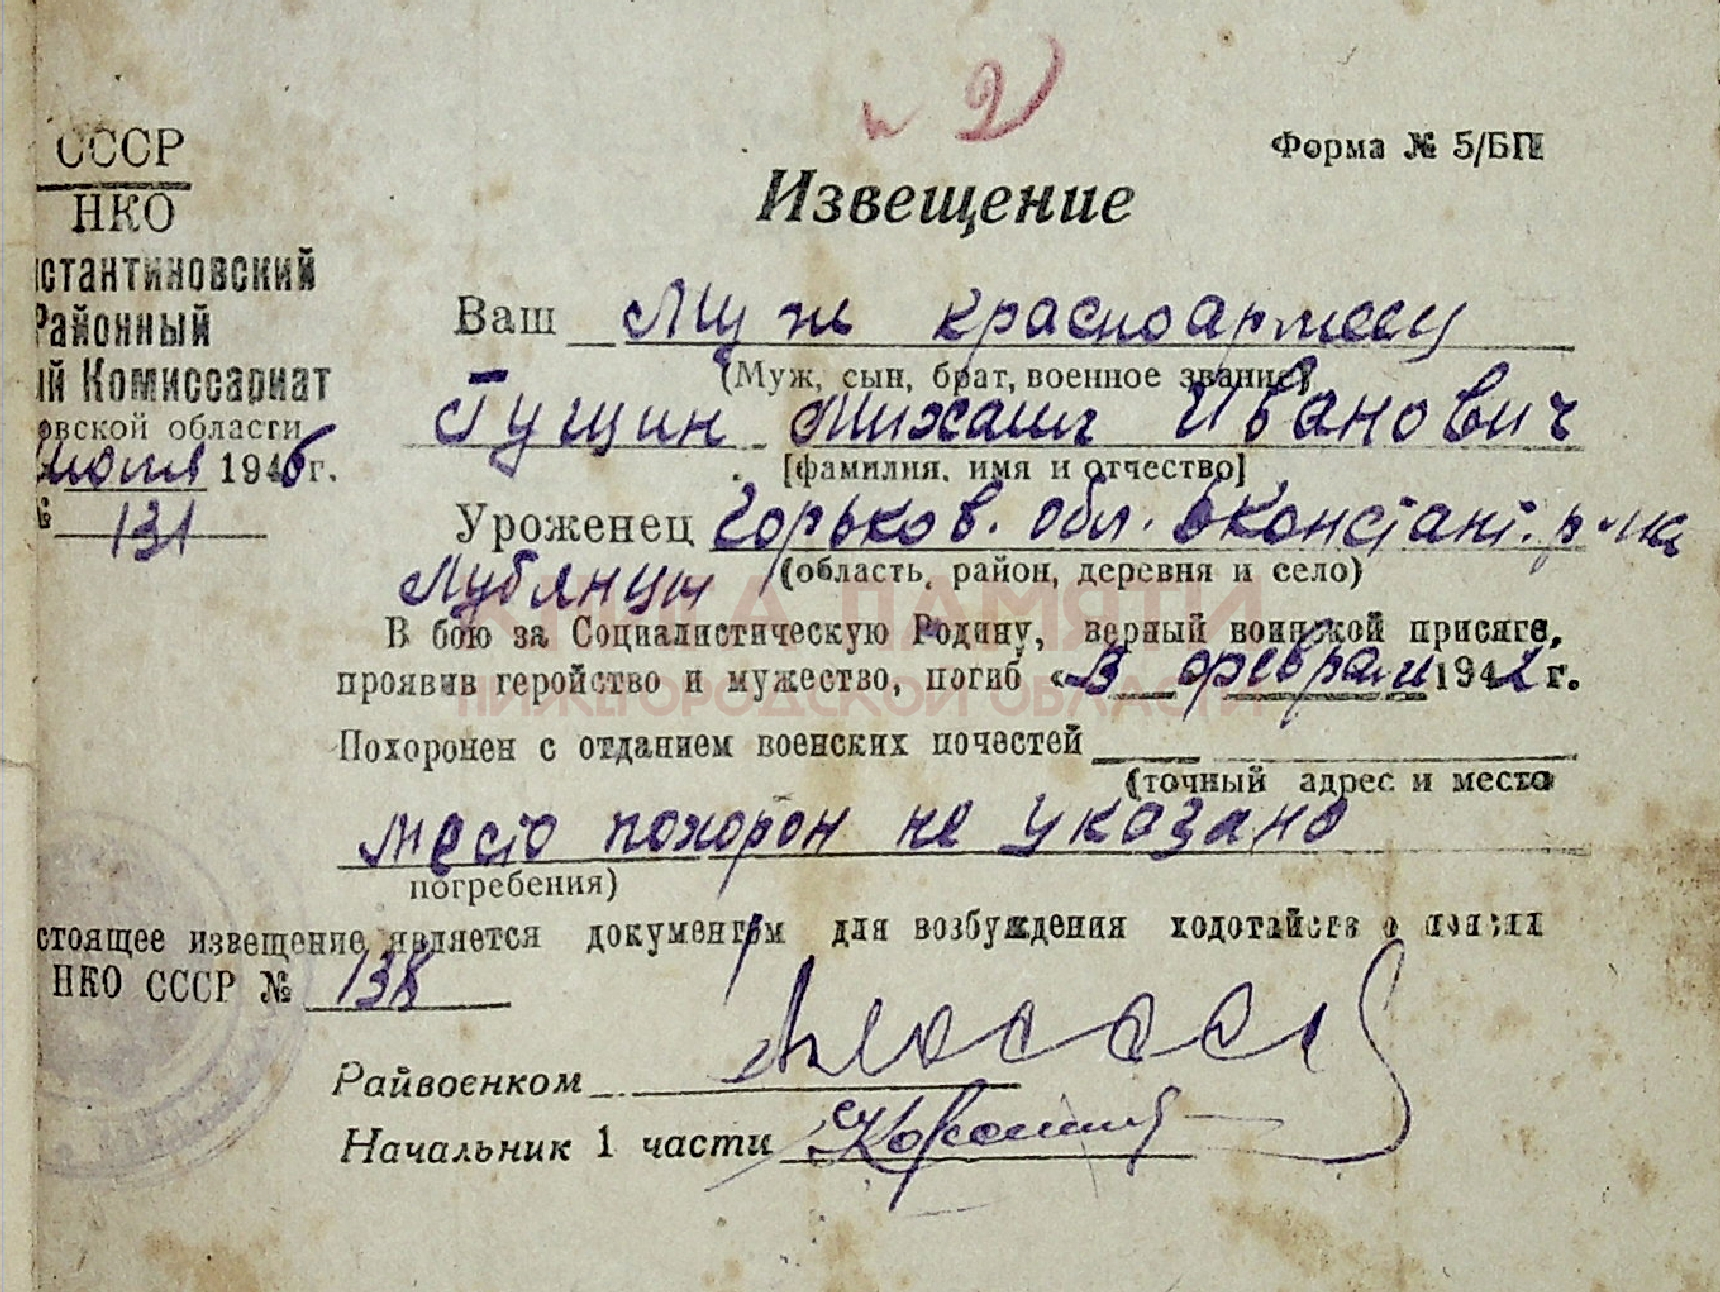 № 2
Форма № 5/БП
СССР
НКО
нстантиновский
Районный
ый Комиссариат
овской области
июля 1946 г.
№ 131
Извещение
Ваш Муж красноармеец
(Муж, сын, брат, военное звание)
Гущин Михаил Иванович
[фамилия, имя и отчество]
Уроженец Горьков. обл. Б Константин. р-на
Лубянцы (область, район, деревня и село)
В бою за Социалистическую Родину, верный воинской присяге,
проявив геройство и мужество, погиб «В феврале 1942 г.
Похоронен с отданием военских почестей
(точный адрес и место
место похорон не указано
погребения)
стоящее извещение является документом для возбуждения ходотайств о пенсии
НКО СССР № 138
Райвоенком
Начальник 1 части
КНИГА ПАМЯТИ
НИЖЕГОРОДСКОЙ ОБЛАСТИ